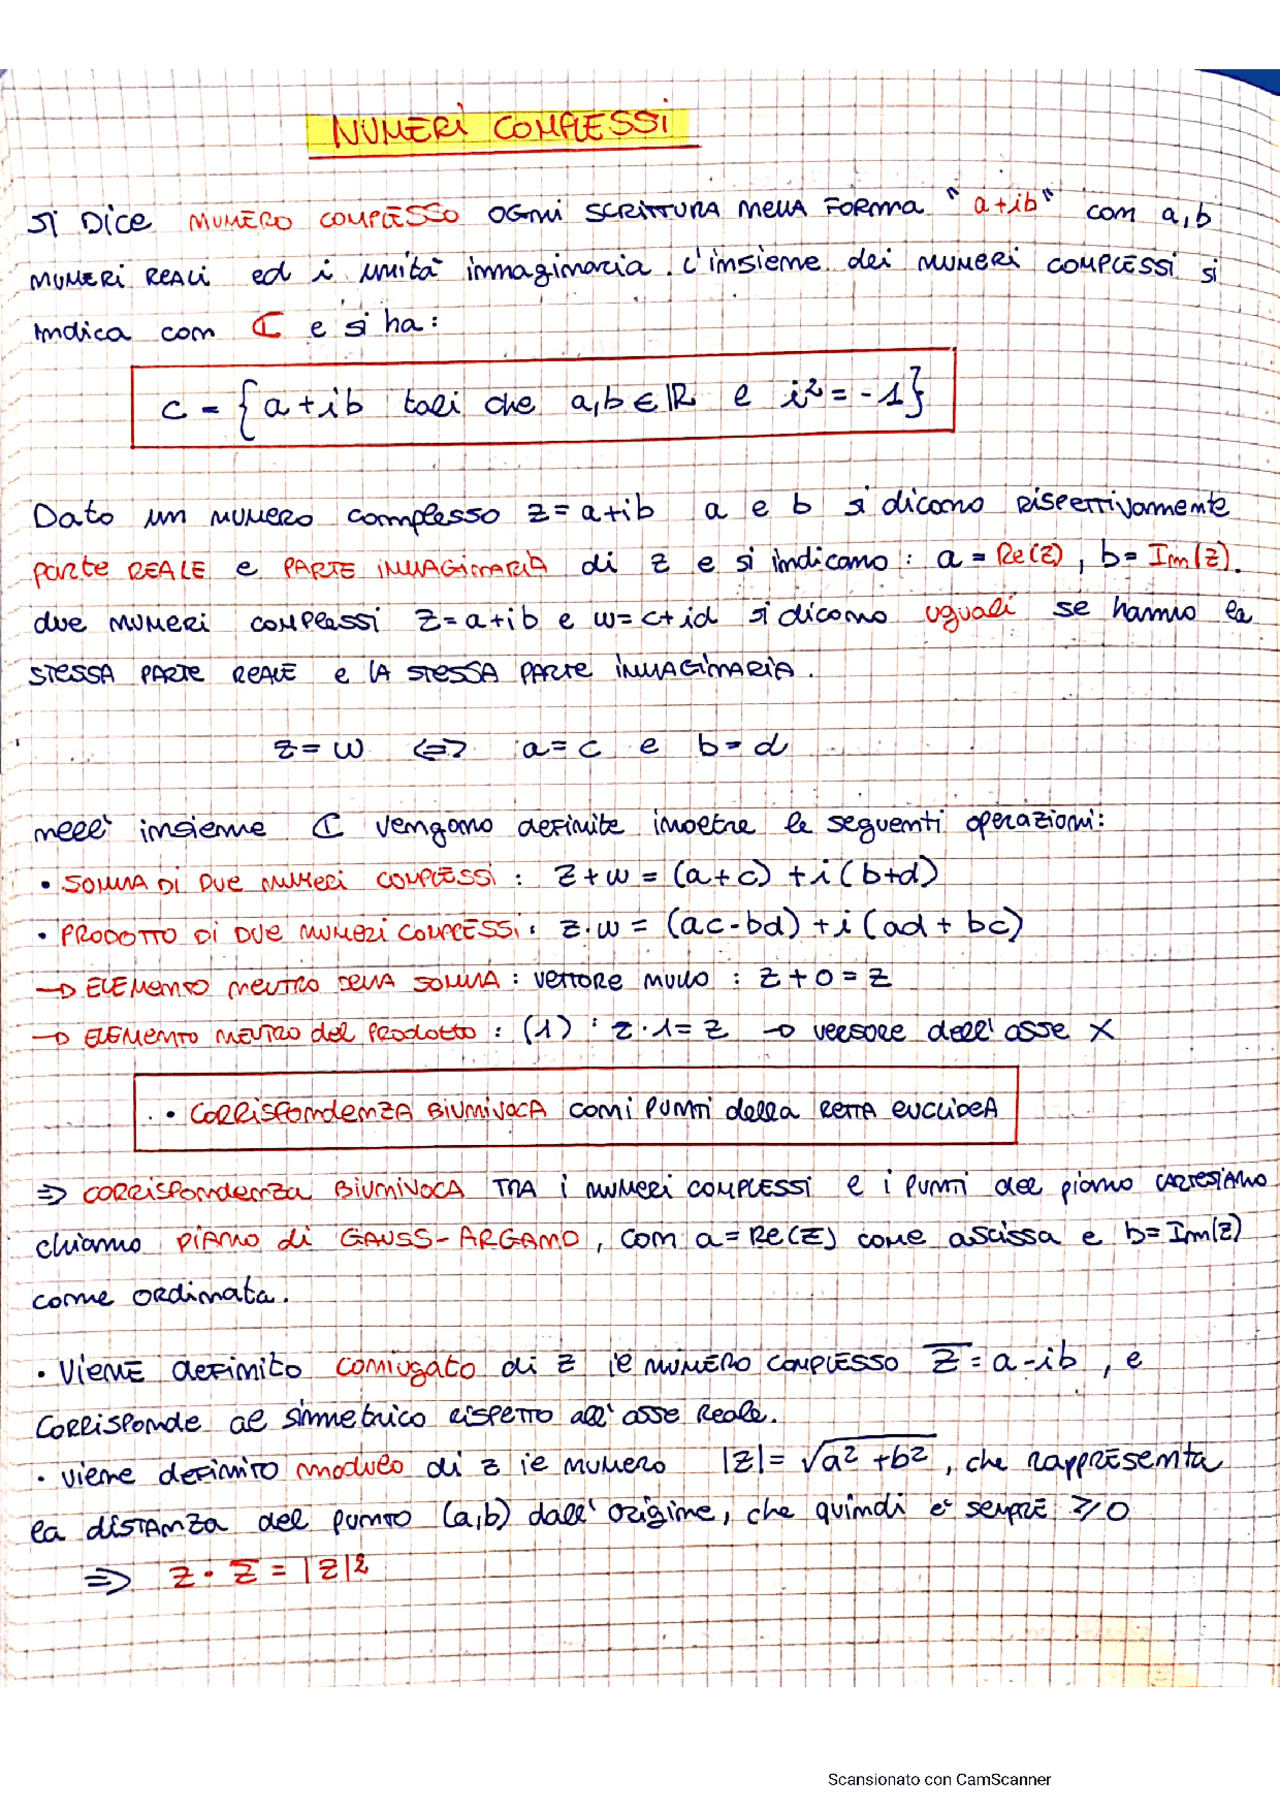 NUMERI COMPLESSI
Si Dice NUMERO COMPLESSO OGni SCRITTURA nella FORMA "a+ib" con a,b
NUMERI REALI ed i unità immaginaria. L'insieme dei NUMERI COMPLESSI si
indica con ℂ e si ha:
C = {a+ib tali che a,b ∈ ℝ e i² = -1}
Dato un NUMERO complesso z = a+ib a e b si dicono RISPETTIVAmente
parte REALE e PARTE IMMAGINARIA di z e si indicano: a = Re(z), b = Im(z).
due NUMERI COMPLESSI z = a+ib e w = c+id si dicono uguali se hanno la
STESSA PARTE REALE e LA STESSA PARTE IMMAGINARIA.
z = w <=> a = c e b = d
nell' insieme ℂ vengono definite inoltre le seguenti operazioni:
• SOMMA Di DUE NUMERI COMPLESSI : z+w = (a+c) + i(b+d)
• PRODOTTO Di DUE NUMERI COMPLESSI: z·w = (ac-bd) + i(ad+bc)
→ ELEMENTO NEUTRO DELLA SOMMA : VETTORE NULLO : z+0 = z
→ ELEMENTO NEUTRO del PRODOTTO : (1) : z·1 = z → versore dell' asse X
• CORRISPONDENZA BIUNIVOCA con i PUNTI della RETTA EUCLIDEA
=> CORRISPONDENZA BIUNIVOCA TRA i NUMERI COMPLESSI e i PUNTI del piano CARTESIANO
chiamo PIANO di GAUSS-ARGAND, con a = Re(z) come ascissa e b = Im(z)
come ordinata.
• Viene definito coniugato di z il NUMERO COMPLESSO z̅ = a-ib, e
CORRISPONDE al simmetrico RISPETTO all' asse Reale.
• viene definito modulo di z il NUMERO |z| = √a²+b², che RAPPRESENTA
la DISTANZA del PUNTO (a,b) dall' origine, che quindi è SEMPRE ≥0
=> z·z̅ = |z|²
Scansionato con CamScanner